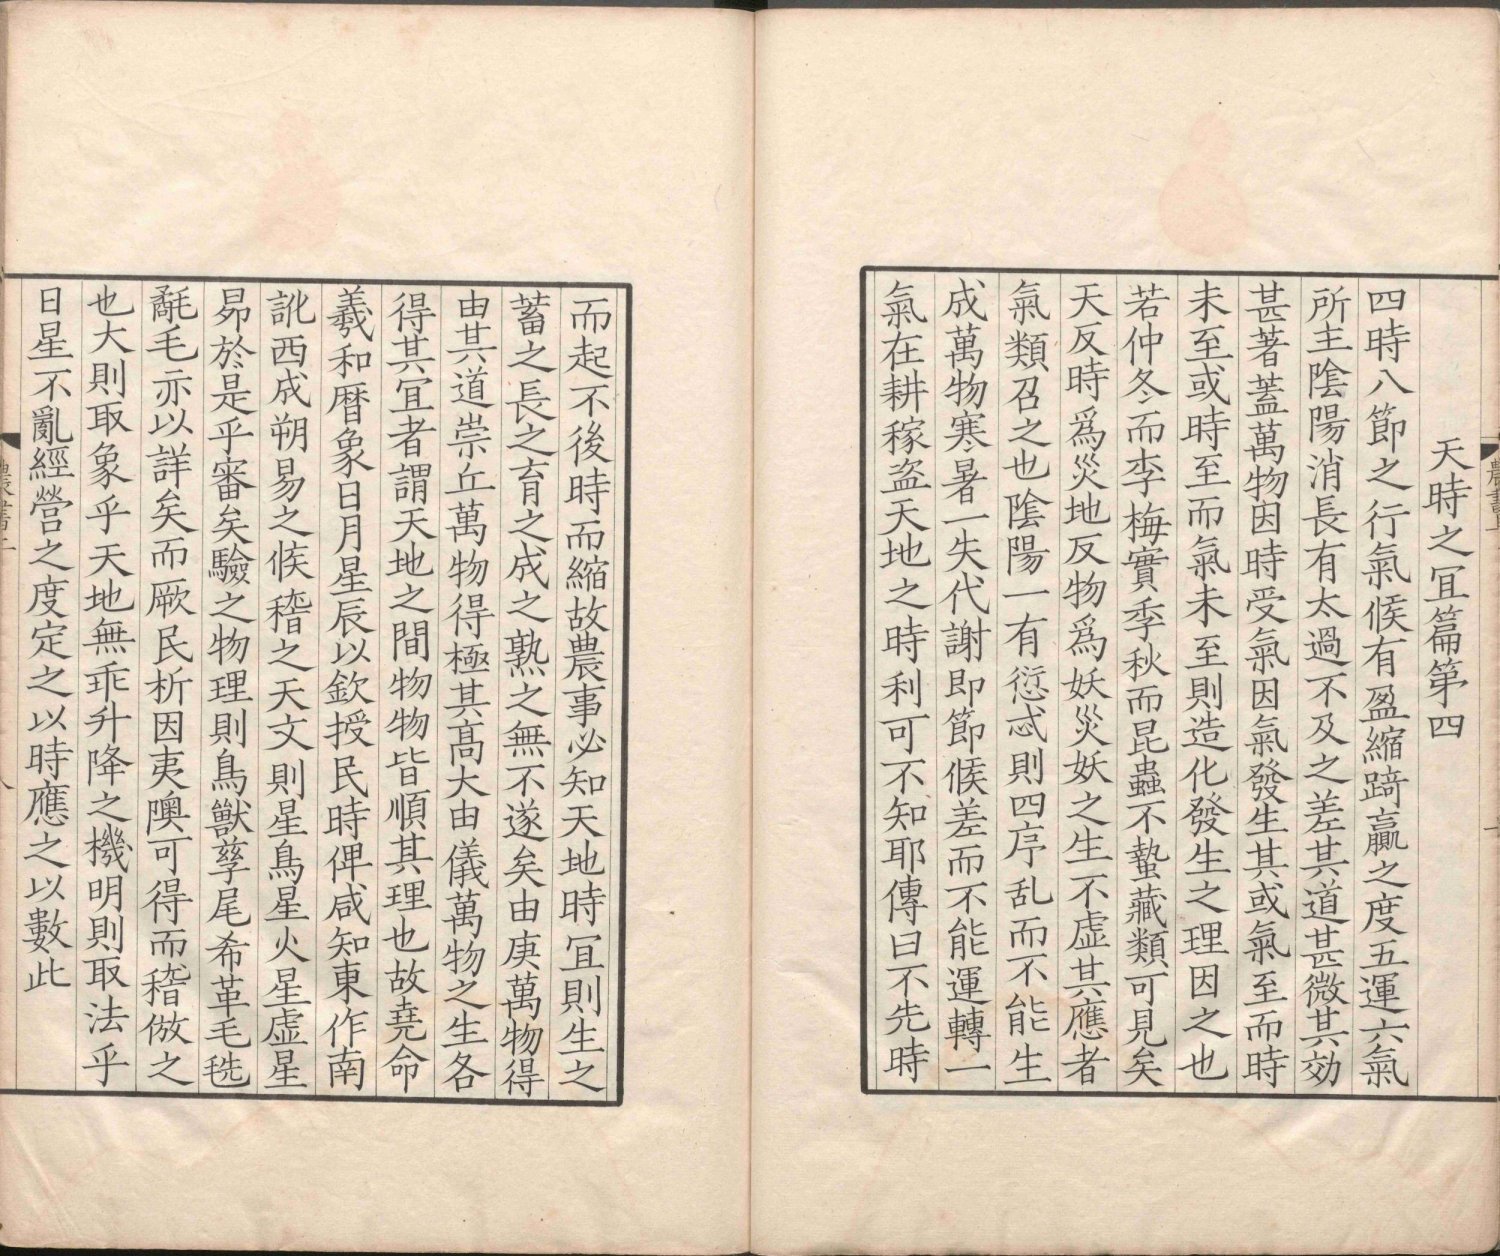 天時之冝篇第四
四時八節之行氣候有盈縮踦贏之度五運六氣
所主陰陽消長有太過不及之差其道甚微其効
甚著蓋萬物因時受氣因氣發生其或氣至而時
未至或時至而氣未至則造化發生之理因之也
若仲冬而李梅實季秋而昆蟲不蟄藏類可見矣
天反時爲災地反物爲妖災妖之生不虛其應者
氣類召之也陰陽一有愆忒則四序乱而不能生
成萬物寒暑一失代謝即節候差而不能運轉一
氣在耕稼盗天地之時利可不知耶傳曰不先時
而起不後時而縮故農事必知天地時冝則生之
蓄之長之育之成之熟之無不遂矣由庚萬物得
由其道崇丘萬物得極其高大由儀萬物之生各
得其冝者謂天地之間物物皆順其理也故堯命
羲和曆象日月星辰以欽授民時俾咸知東作南
訛西成朔易之候稽之天文則星鳥星火星虛星
昴於是乎審矣驗之物理則鳥獸孳尾希革毛毨
氄毛亦以詳矣而厥民析因夷隩可得而稽倣之
也大則取象乎天地無乖升降之機明則取法乎
日星不亂經營之度定之以時應之以數此
農書上